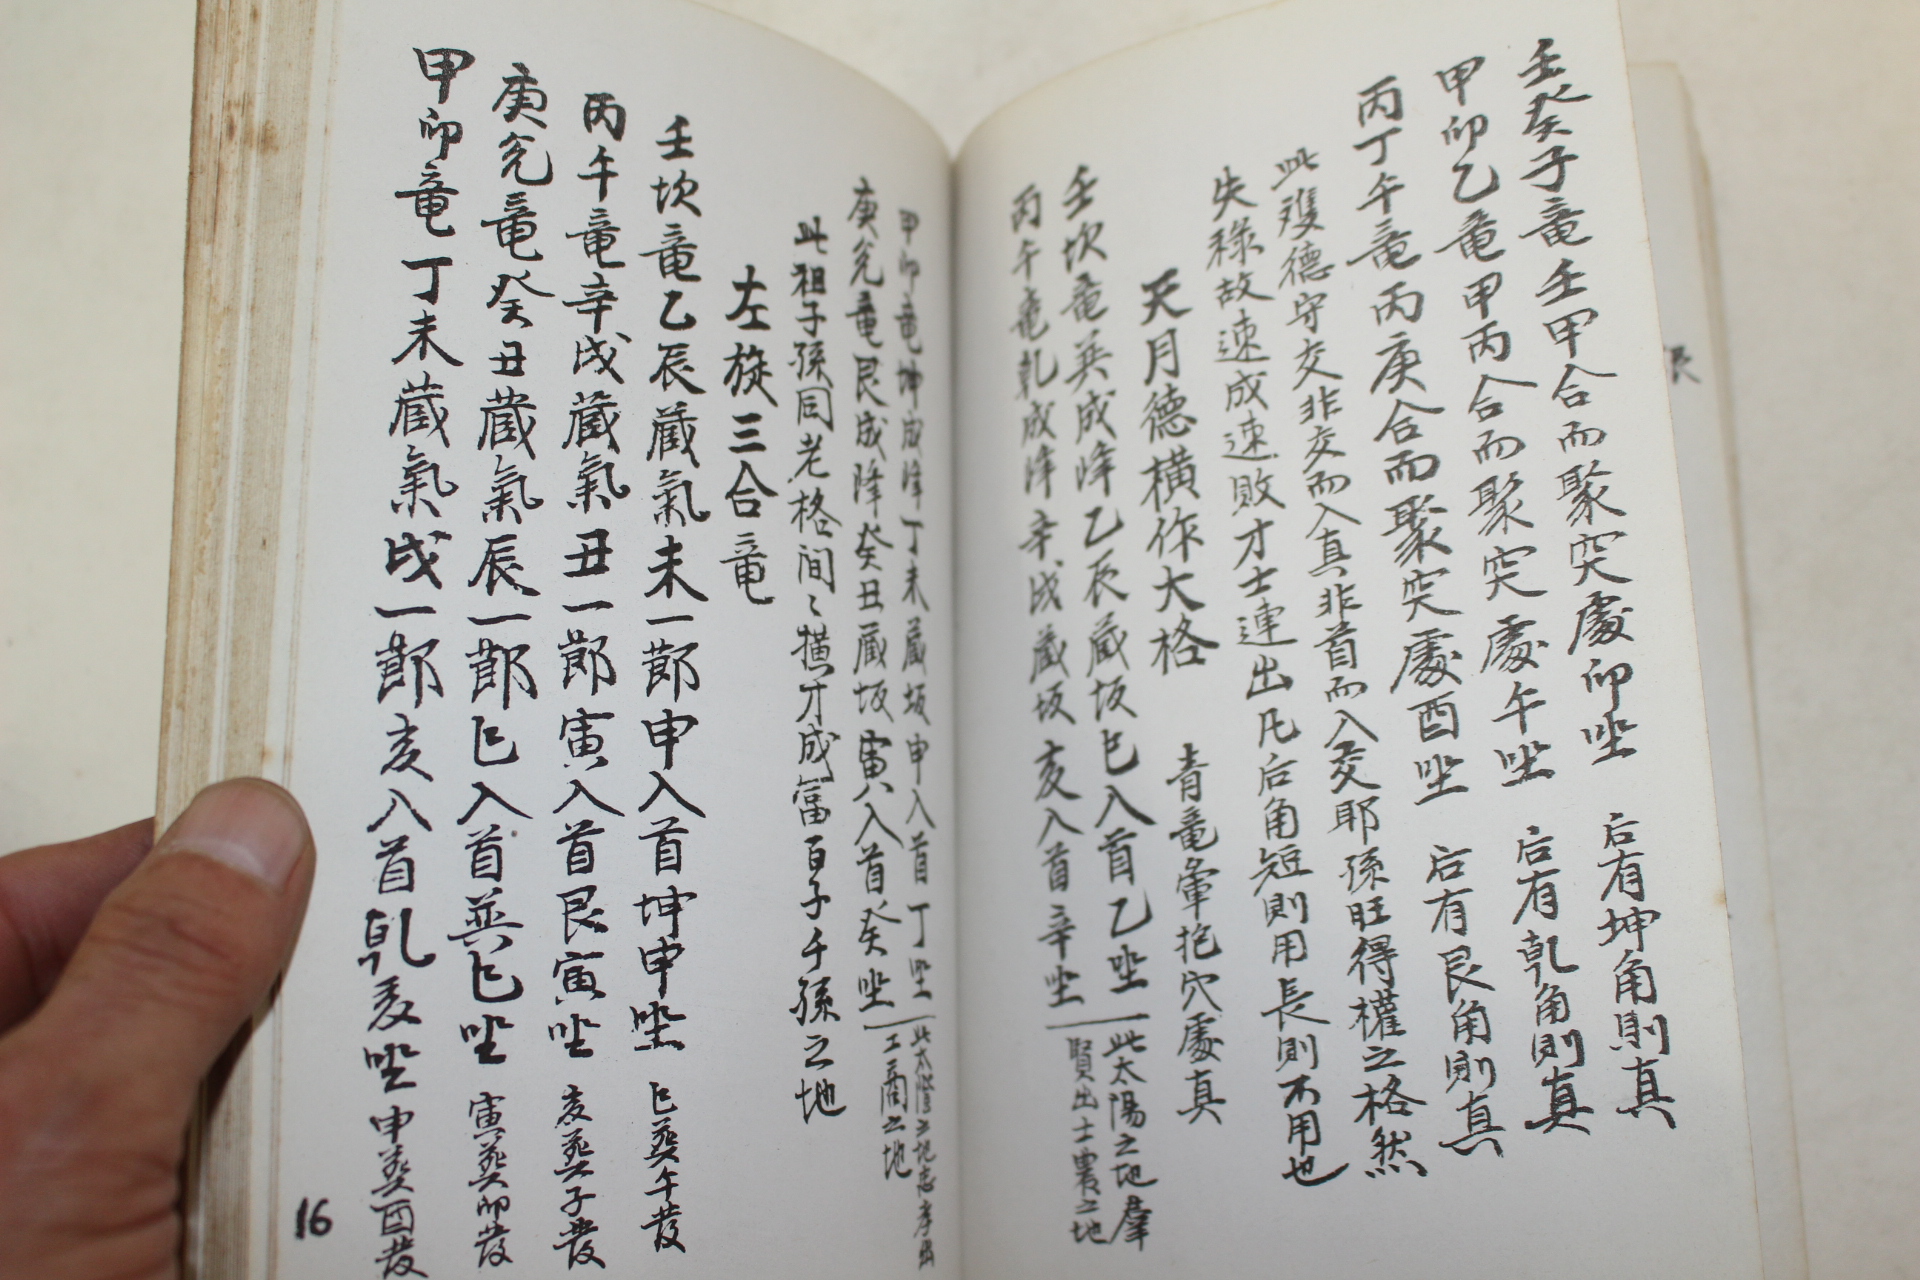 壬癸子竜壬甲合而聚突處卯坐 后有坤角則真
甲卯乙竜甲丙合而聚突處午坐 后有乾角則真
丙丁午竜丙庚合而聚突處酉坐 后有艮角則真
此獲德守交非交而入真非首而入交耶孫旺得權之格然
失祿故速成速敗才士連出凡后角短則用長則不用也
天月德橫作大格 青竜暈抱穴處真
壬坎竜巽成峰乙辰蔵坂巳入首乙坐 此太陽之地羣
賢出士農之地
丙午竜乾成峰辛戌蔵坂亥入首辛坐
甲卯竜坤成峰丁未蔵坂申入首丁坐 此太陰之地忠孝出
工商之地
庚兌竜艮成峰癸丑蔵坂寅入首癸坐
此祖子孫同老格間〻橫才成富百子千孫之地
左旋三合竜
壬坎竜乙辰蔵氣未一節申入首坤申坐 巳葬午發
丙午竜辛戌蔵氣丑一節寅入首艮寅坐 亥葬子發
庚兌竜癸丑蔵氣辰一節巳入首巽巳坐 寅葬卯發
甲卯竜丁未蔵氣戌一節亥入首乾亥坐 申葬酉發
16
艮